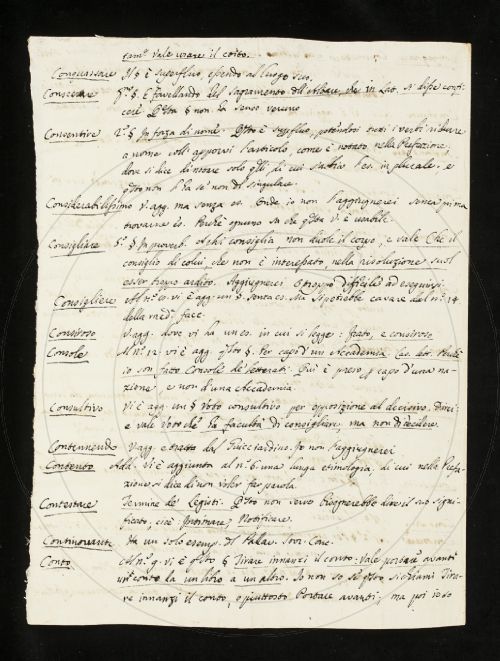 tam.e vale usare il coito.
Conquassare Il § è superfluo, essendo al luogo suo.
Consecrare §.mo §. E favellando del Sagramento dell'Altare, che in Lat. si disse
Q.sto § non ha senso veruno
Consentire 2.o § In forza di nome. Q.sto è superfluo, potendosi tutti i verbi ridurre
a nome coll'apporvi l'articolo, come è notato nella Prefazione.
dove si dice di notare solo q.lli di cui s'abbia l'es. in plurale. e
q.sto non l'ha se non di singulare.
Considerabilissimo v. agg. ma senza es. Onde io non l'aggiugnerei senza prima
trovarne es. Perchè ognuno sa che q.sta v. è usabile.
Consigliare 5.o § In proverb. A chi consiglia non duole il corpo, e vale Che il
consiglio di colui che non è interessato, nella risoluzione suol
esser troppo ardito. Aggiugnerei o troppo difficile ad eseguirsi.
Consigliere Al n.o vi è agg. un §. senza es. Ma si potrebbe cavare dal n.o 14
della med.a face.
Consiroso v. agg. dove vi ha un es. in cui si legge: frato, e consiroso
Console Al n.o 12. vi è agg. q.sto §. Per capo d'un Accademia. Car. lett. Perchè
io son fato Console de' letterati. Qui è preso p capo d'una na-
zione e non d'una Accademia.
Consultivo Vi è agg. un § Voto consultivo per opposizione al decisivo. Direi
e vale voto che ha facultà di consigliere, ma non di decidere.
Contennendo v. agg. e tratta dal Guicciardino. Io non l'aggiugnerei
Contento Add. vi è aggiunta al n.o 6. una lunga etimologia di cui nella Prefa-
zione si dice di non voler far parola.
Contestare Termine de' Legisti. Q.sto non serve bisognerebbe dire il suo signi-
ficato, cioè Intimare, Notificare.
Continovante Ha un solo esemp. Tt. Pallav. Stor. Conc.
Conto Al n.o 9. vi è q.sto § Tirare innanzi il conto: vale portare avanti
un conto da un libro a un altro. Io non so se q.sto si chiami Tira-
re innanzi il conto, o piuttosto Portare avanti; ma poi io so